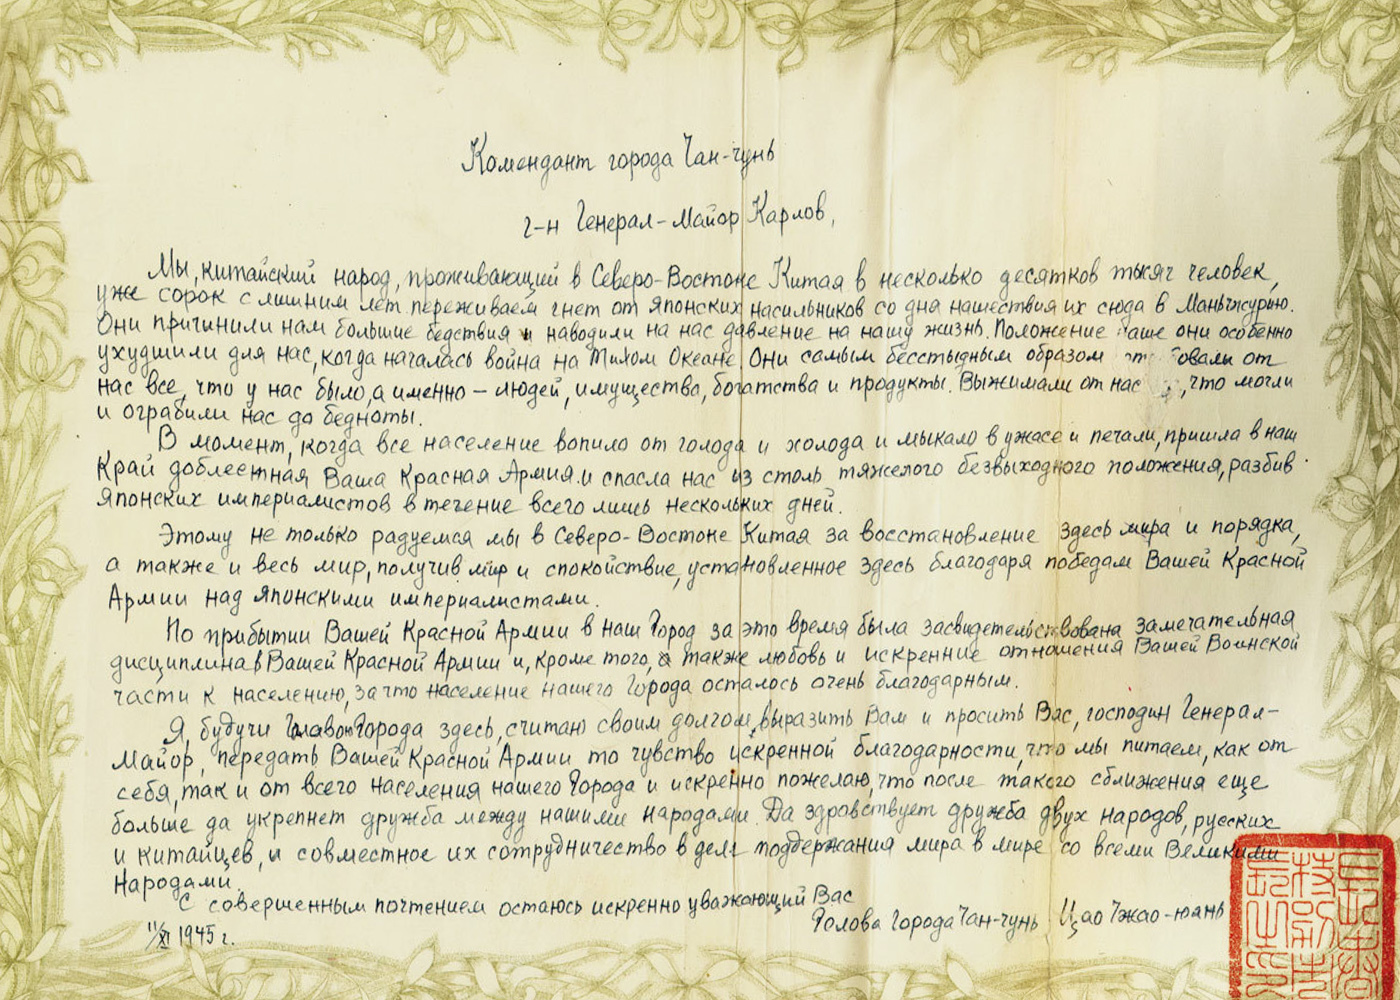 Комендант города Чан-чунь
г-н Генерал-Майор Карлов,
Мы, китайский народ, проживающий в Северо-Востоке Китая в несколько десятков тысяч человек,
уже сорок с лишним лет переживаем гнет от Японских насильников со дня нашествия их сюда в Маньчжурию.
Они причинили нам большие бедствия и наводили на нас давление на нашу жизнь. Положение наше они особенно
ухудшили для нас, когда началась война на Тихом Океане. Они самым бесстыдным образом от
нас все, что у нас было, а именно — людей, имущества, богатства и продукты. Выжимали от нас , что могли
и ограбили нас до бедноты.
В момент, когда все население вопило от голода и холода и мыкало в ужасе и печали, пришла в наш
Край доблестная Ваша Красная Армия и спасла нас из столь тяжелого безвыходного положения, разбив
Японских империалистов в течение всего лишь нескольких дней.
Этому не только радуемся мы в Северо-Востоке Китая за восстановление здесь мира и порядка,
а также и весь мир, получив мир и спокойствие, установленное здесь благодаря победам Вашей Красной
Армии над Японскими империалистами.
По прибытии Вашей Красной Армии в наш Город за это время была засвидетельствована замечательная
дисциплина в Вашей Красной Армии и, кроме того, а также любовь и искренние отношения Вашей Воинской
части к населению, за что население нашего Города осталось очень благодарным.
Я, будучи Главою Города здесь, считаю своим долгом выразить Вам и просить Вас, господин Генерал-
Майор, передать Вашей Красной Армии то чувство искренной благодарности, что мы питаем, как от
себя, так и от всего населения нашего Города и искренно пожелаю, что после такого сближения еще
больше да укрепнет дружба между нашими народами. Да здравствует дружба двух народов, русских
и китайцев, и совместное их сотрудничество в деле поддержания мира в мире со всеми Великими
Народами.
С совершенным почтением остаюсь искренно уважающий Вас
Голова Города Чан-чунь Цао Чжао-юань
11/XI 1945 г.